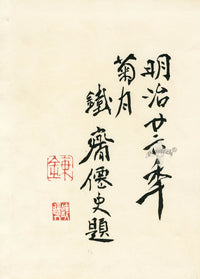 明治廿六年
菊月
鐵齋僊史題